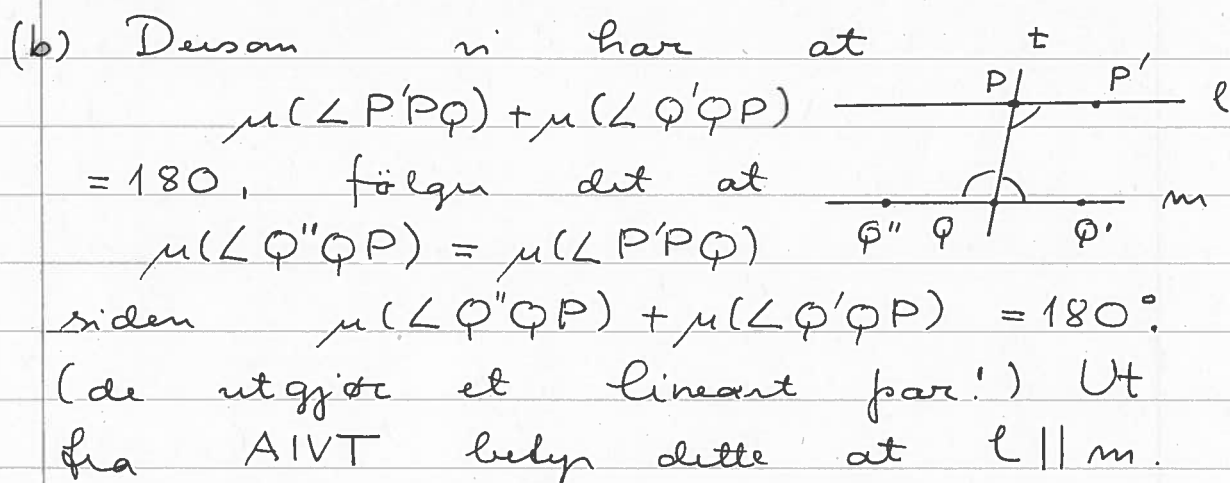 (b) Dersom vi har at
μ(∠P'PQ) + μ(∠Q'QP)
= 180, følger det at
μ(∠Q''QP) = μ(∠P'PQ)
siden μ(∠Q''QP) + μ(∠Q'QP) = 180°.
(de utgjør et lineært par!) Ut
fra AIVT betyr dette at l || m.
t
P P' l
m
Q'' Q Q'